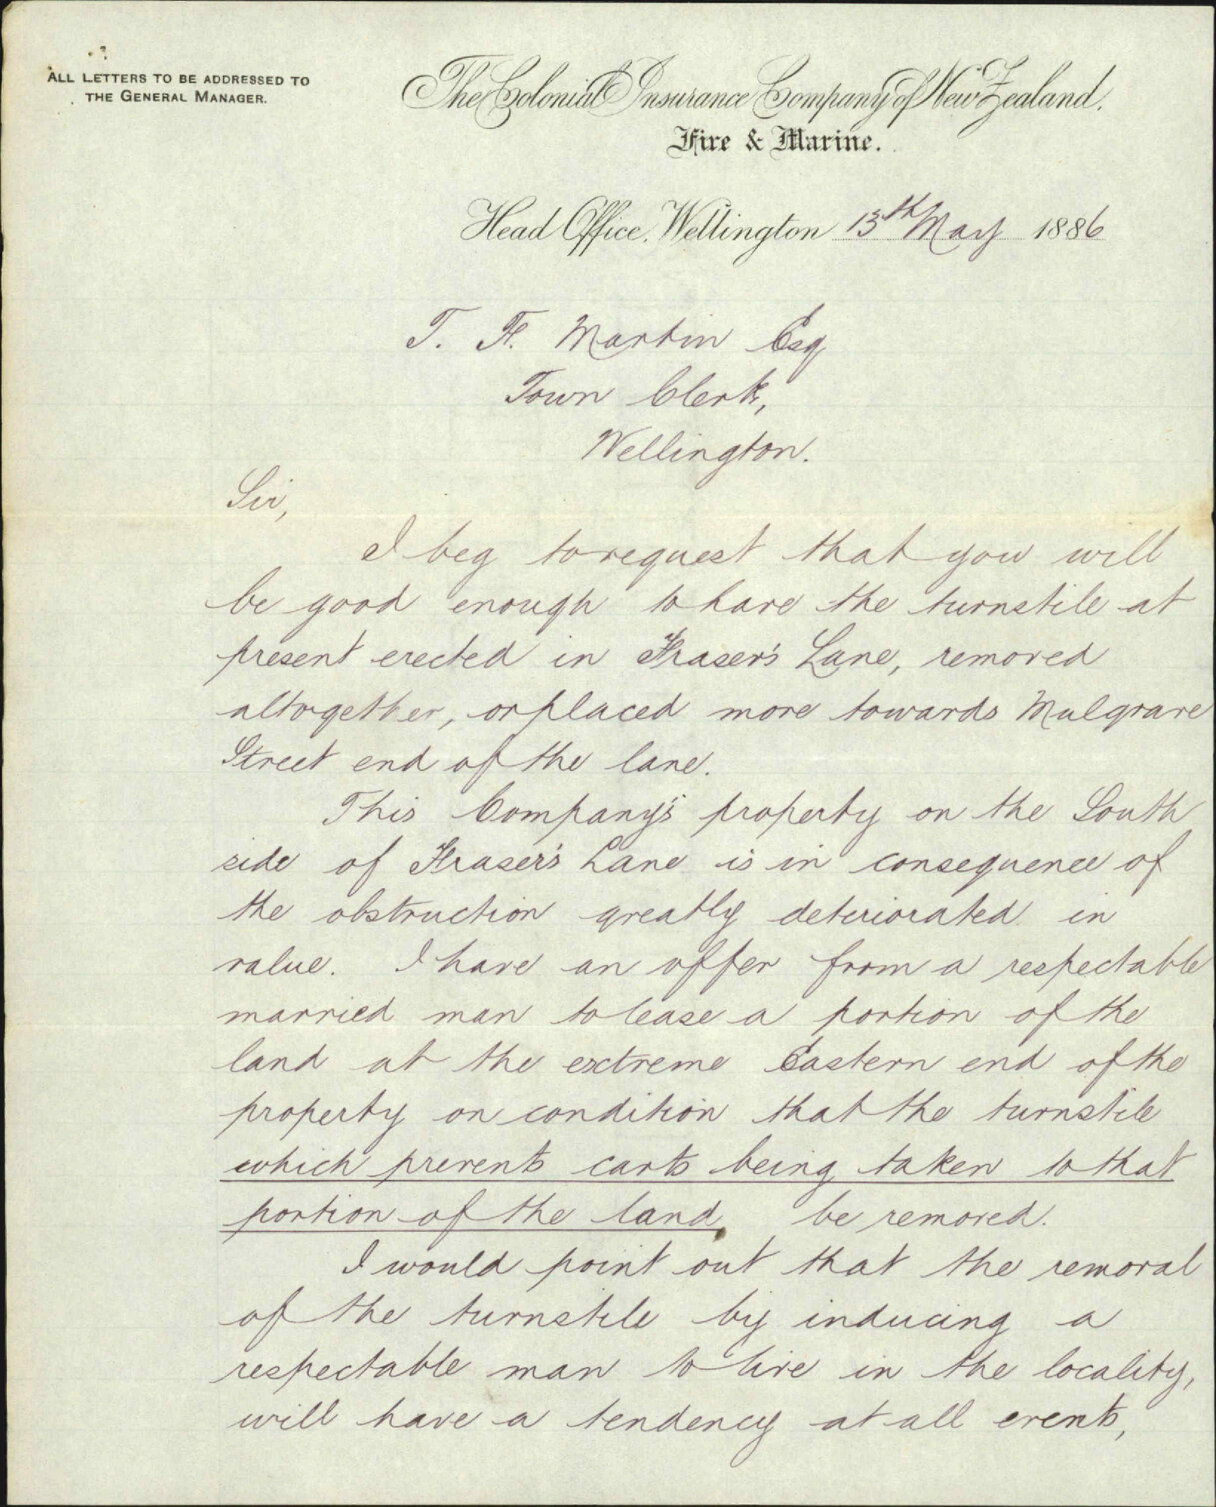 ALL LETTERS TO BE ADDRESSED TO
THE GENERAL MANAGER.
The Colonial Insurance Company of New Zealand.
Fire & Marine.
Head Office, Wellington 13th May 1886
T. F. Martin Esq
Town Clerk,
Wellington.
Sir,
I beg to request that you will
be good enough to have the turnstile at
present erected in Fraser's Lane, removed
altogether, or placed more towards Mulgrave
Street end of the lane.
This Company's property on the South
side of Fraser's Lane is in consequence of
the obstruction greatly deteriorated in
value. I have an offer from a respectable
married man to lease a portion of the
land at the extreme Eastern end of the
property on condition that the turnstile
which prevents carts being taken to that
portion of the land, be removed.
I would point out that the removal
of the turnstile by inducing a
respectable man to live in the locality,
will have a tendency at all events,